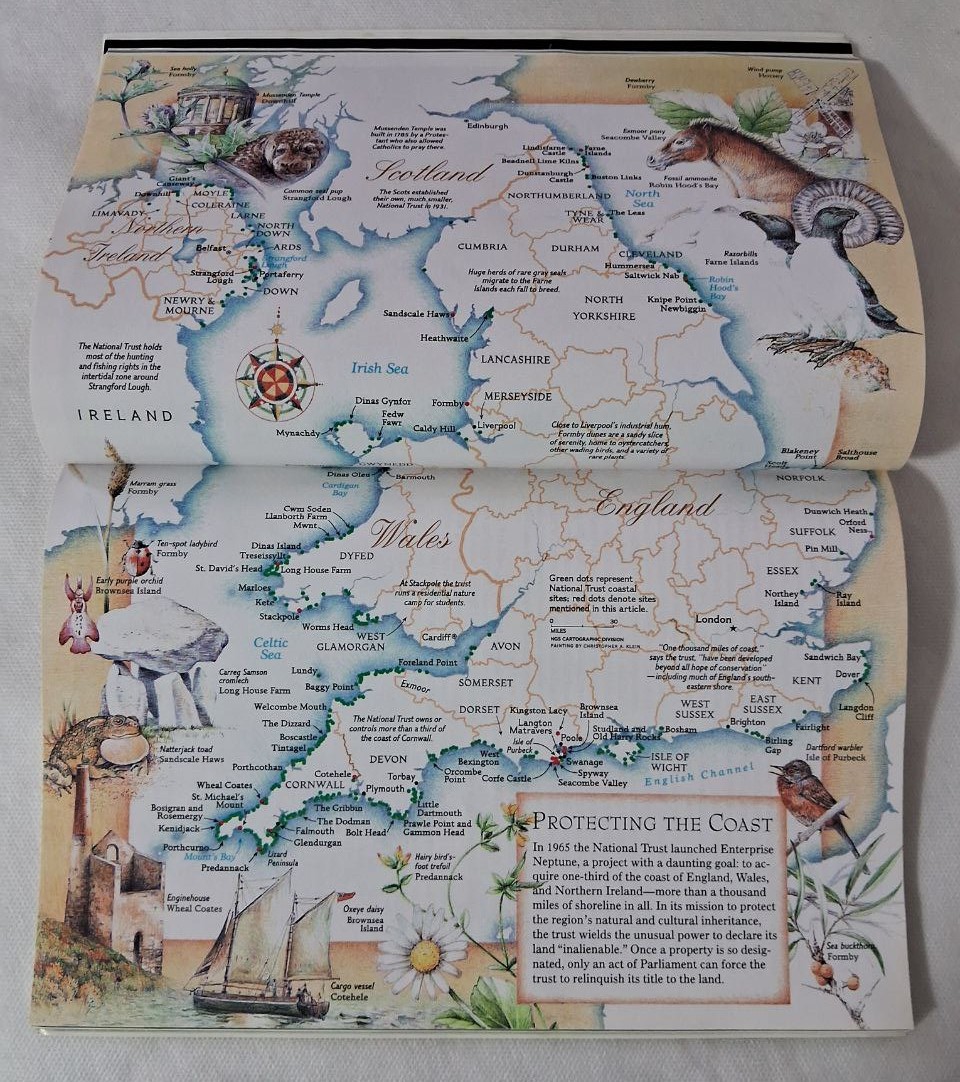 Sea holly
Formby
Mussenden Temple
Downhill
Mussenden Temple was
built in 1785 by a Protes-
tant who also allowed
Catholics to pray there.
Edinburgh
Dewberry
Formby
Wind pump
Horsey
Esmoor pony
Seacombe Valley
Lindisfarne
Castle
Farne
Islands
Beadnell Lime Kilns
Dunstanburgh
Castle
Buston Links
Fossil ammonite
Robin Hood's Bay
Scotland
The Scots established
their own, much smaller,
National Trust in 1931.
Giant's
Causeway
Downhill
MOYLE
COLERAINE
Common seal pup
Strangford Lough
LIMAVADY
LARNE
Northern
Ireland
NORTH
DOWN
Belfast
ARDS
Strangford
Lough
Strangford
Lough
Portaferry
DOWN
NEWRY &
MOURNE
NORTHUMBERLAND
North
Sea
TYNE &
WEAR
The Leas
CUMBRIA
DURHAM
CLEVELAND
Hummersea
Saltwick Nab
Razorbills
Farne Islands
Robin
Hood's
Bay
Huge herds of rare gray seals
migrate to the Farne
Islands each fall to breed.
NORTH
YORKSHIRE
Knipe Point
Newbiggin
Sandscale Haws
Heathwaite
The National Trust holds
most of the hunting
and fishing rights in the
intertidal zone around
Strangford Lough.
IRELAND
Irish Sea
LANCASHIRE
MERSEYSIDE
Dinas Gynfor
Fedw
Fawr
Formby
Mynachdy
Caldy Hill
Liverpool
Close to Liverpool's industrial hum,
Formby dunes are a sandy slice
of serenity, home to oystercatchers,
other wading birds, and a variety of
rare plants.
Blakeney
Point
Salthouse
Broad
GWYNEDD
Dinas Oleu
Barmouth
Cardigan
Bay
NORFOLK
Marram grass
Formby
Cwm Soden
Llanborth Farm
Mwnt
Wales
England
Dunwich Heath
Orford
Ness
SUFFOLK
Pin Mill
Ten-spot ladybird
Formby
Dinas Island
Treseissyllt
DYFED
St. David's Head
Long House Farm
Early purple orchid
Brownsea Island
Marloes
Kete
Stackpole
At Stackpole the trust
runs a residential nature
camp for students.
Green dots represent
National Trust coastal
sites; red dots denote sites
mentioned in this article.
0 30
MILES
NGS CARTOGRAPHIC DIVISION
PAINTING BY CHRISTOPHER A. KLEIN
ESSEX
Northey
Island
Ray
Island
London
Worms Head
WEST
GLAMORGAN
Cardiff
AVON
Celtic
Sea
"One thousand miles of coast,"
says the trust, "have been developed
beyond all hope of conservation"
—including much of England's south-
eastern shore.
Sandwich Bay
KENT
Dover
Carreg Samson
cromlech
Long House Farm
Lundy
Foreland Point
Baggy Point
Exmoor
SOMERSET
Welcombe Mouth
The Dizzard
Boscastle
Tintagel
The National Trust owns or
controls more than a third of
the coast of Cornwall.
DORSET
Kingston Lacy
Brownsea
Island
Langton
Matravers
Studland and
Old Harry Rocks
Isle of
Purbeck
Poole
Bosham
WEST
SUSSEX
EAST
SUSSEX
Brighton
Birling
Gap
Fairlight
Langdon
Cliff
Dartford warbler
Isle of Purbeck
DEVON
West
Bexington
Swanage
Spyway
Seacombe Valley
Corfe Castle
ISLE OF
WIGHT
English Channel
Natterjack toad
Sandscale Haws
Porthcothan
Cotehele
Torbay
Orcombe
Point
Wheal Coates
St. Michael's
Mount
CORNWALL
Plymouth
Bosigran and
Rosemergy
Kenidjack
The Gribbin
The Dodman
Falmouth
Glendurgan
Bolt Head
Little
Dartmouth
Prawle Point and
Gammon Head
Porthcurno
Mount's Bay
Predannack
Lizard
Peninsula
Hairy bird's-
foot trefoil
Predannack
Enginehouse
Wheal Coates
Oxeye daisy
Brownsea
Island
Cargo vessel
Cotehele
Sea buckthorn
Formby
PROTECTING THE COAST
In 1965 the National Trust launched Enterprise
Neptune, a project with a daunting goal: to ac-
quire one-third of the coast of England, Wales,
and Northern Ireland—more than a thousand
miles of shoreline in all. In its mission to protect
the region's natural and cultural inheritance,
the trust wields the unusual power to declare its
land "inalienable." Once a property is so desig-
nated, only an act of Parliament can force the
trust to relinquish its title to the land.